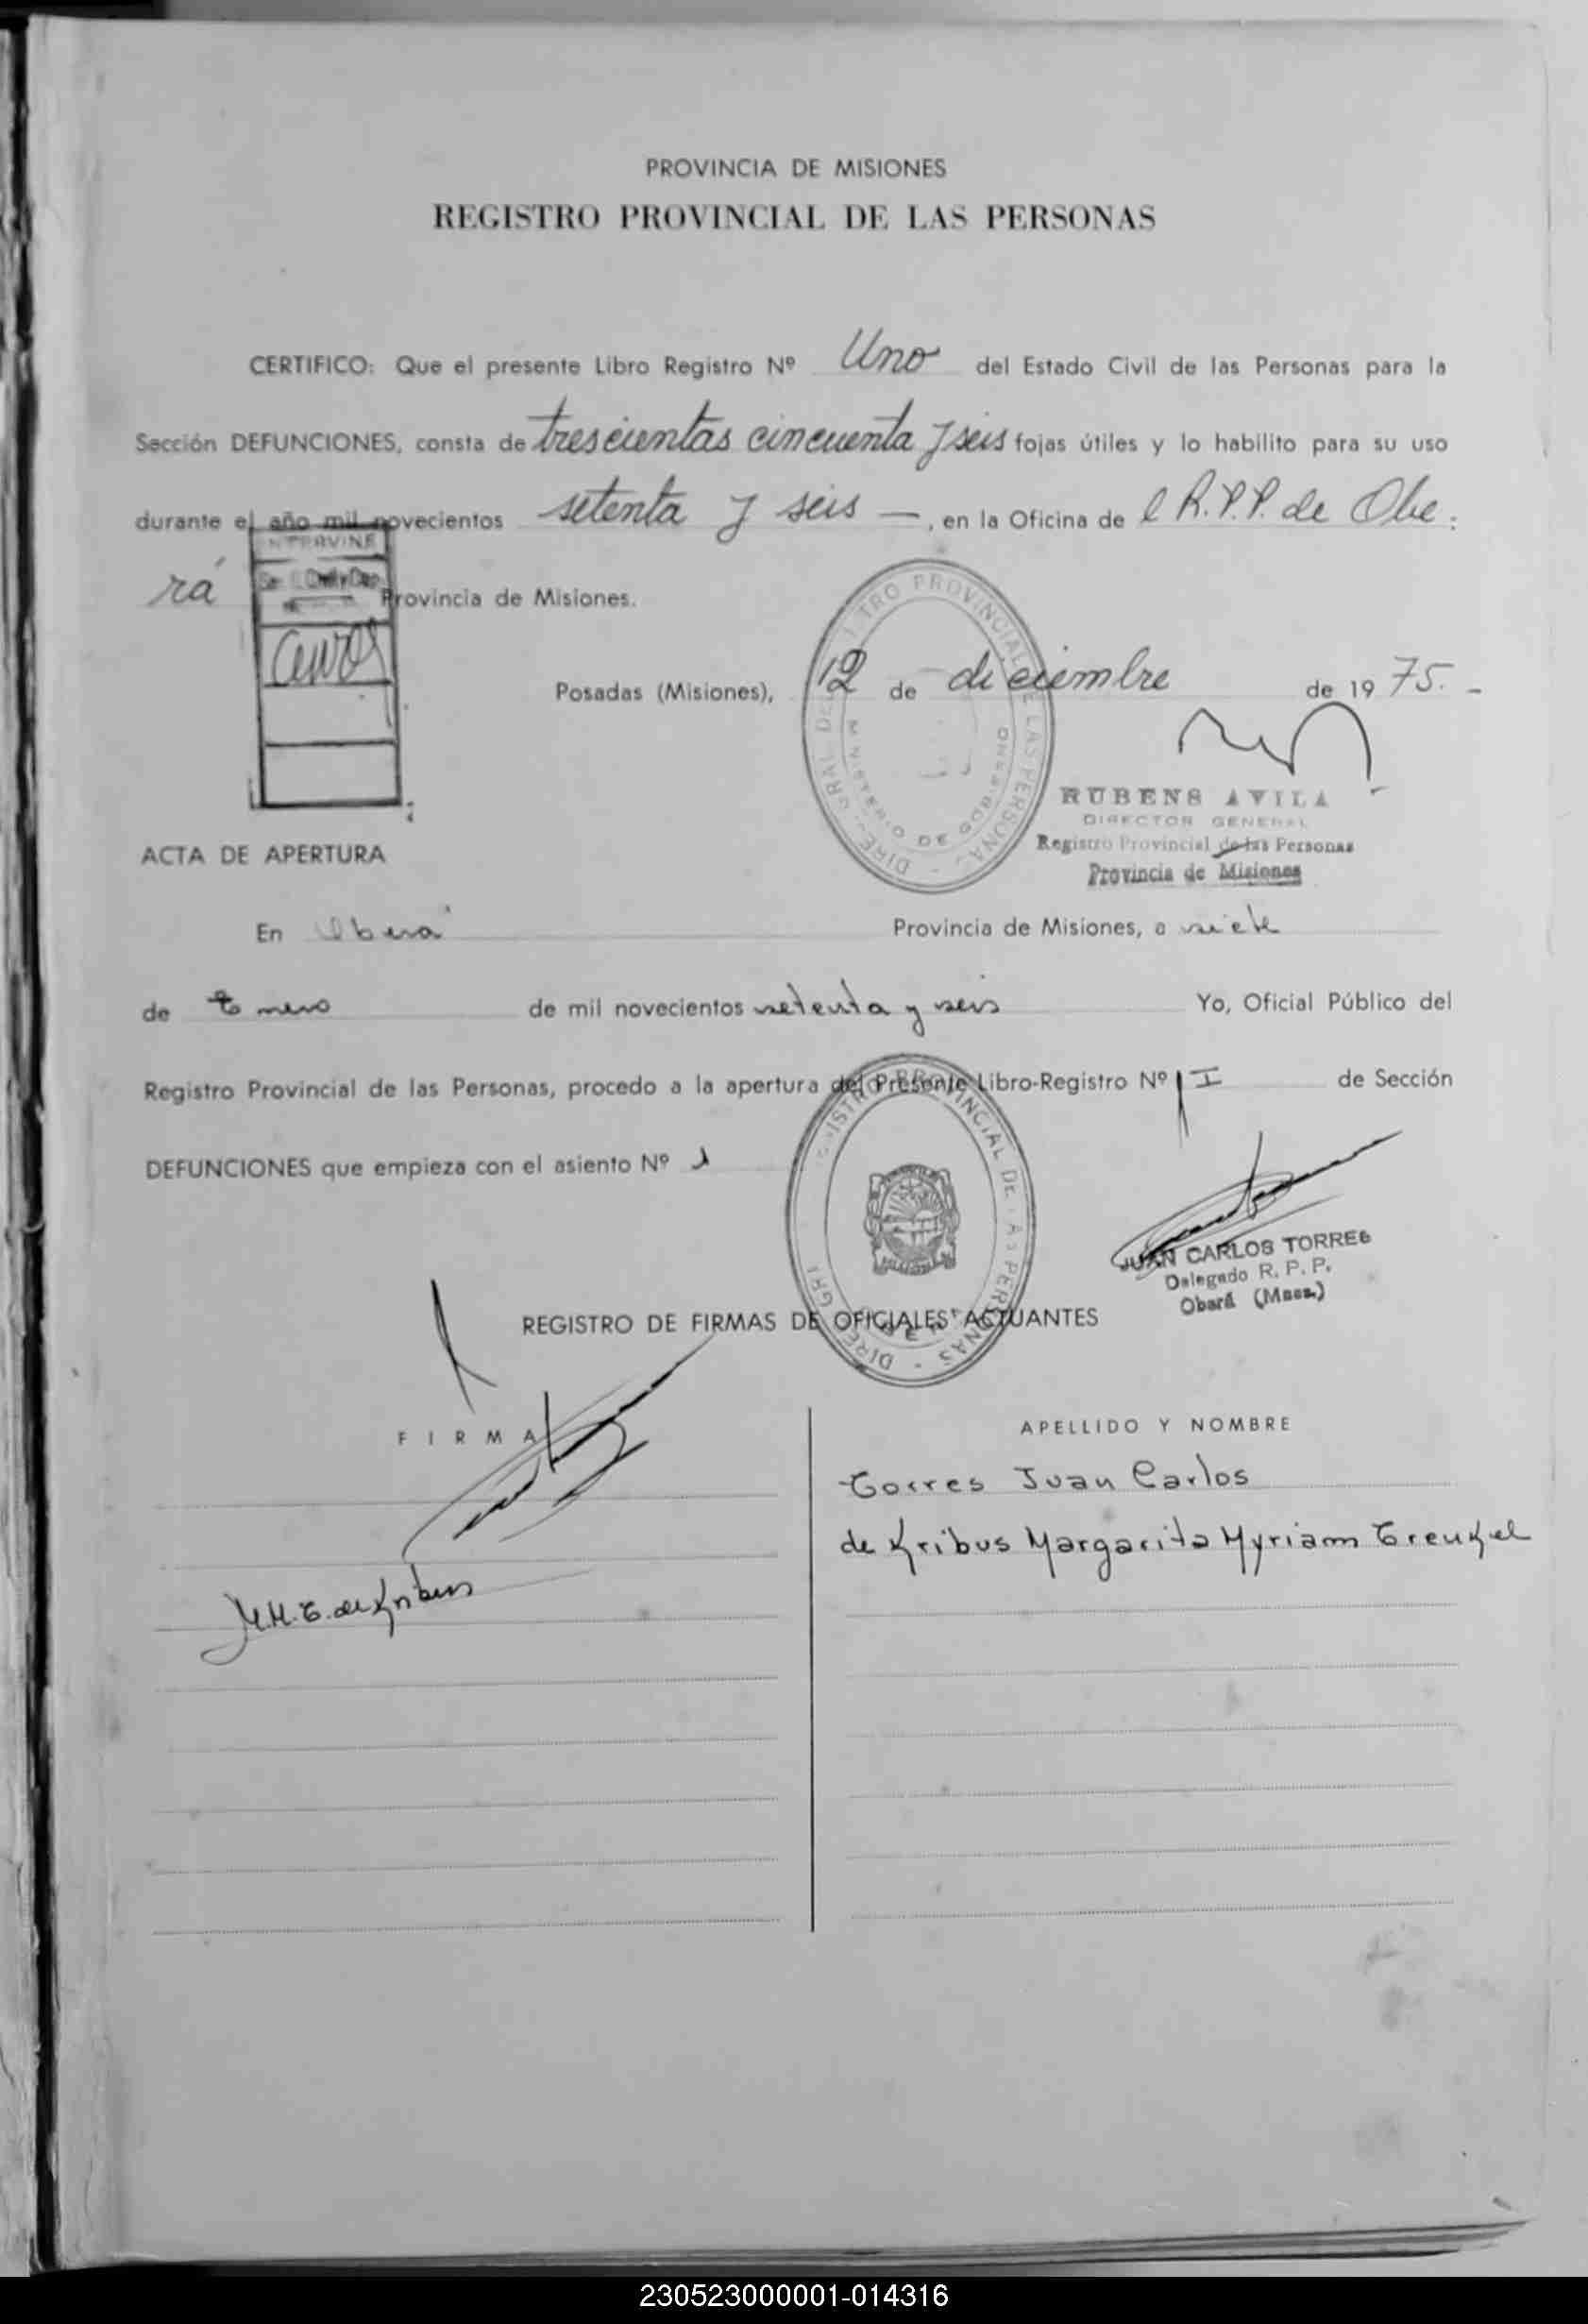 PROVINCIA DE MISIONES
REGISTRO PROVINCIAL DE LAS PERSONAS
CERTIFICO: Que el presente Libro Registro Nº Uno del Estado Civil de las Personas para la
Sección DEFUNCIONES, consta de trescientas cincuenta y seis fojas útiles y lo habilito para su uso
durante el año mil novecientos setenta y seis —, en la Oficina de l R.P.P. de Obe-
rá Provincia de Misiones.
INTERVINE
Posadas (Misiones), 12 de diciembre de 1975.-
RUBENS AVILA
DIRECTOR GENERAL
Registro Provincial de las Personas
Provincia de Misiones
ACTA DE APERTURA
En Oberá Provincia de Misiones, a siete
de Enero de mil novecientos setenta y seis Yo, Oficial Público del
Registro Provincial de las Personas, procedo a la apertura del Presente Libro-Registro Nº I de Sección
DEFUNCIONES que empieza con el asiento Nº 1
JUAN CARLOS TORRES
Delegado R. P. P.
Oberá (Mnes.)
REGISTRO DE FIRMAS DE OFICIALES ACTUANTES
FIRMA
APELLIDO Y NOMBRE
Torres Juan Carlos
de Kribus Margarita Myriam Trenkel
M.M.T. de Kribus
230523000001-014316